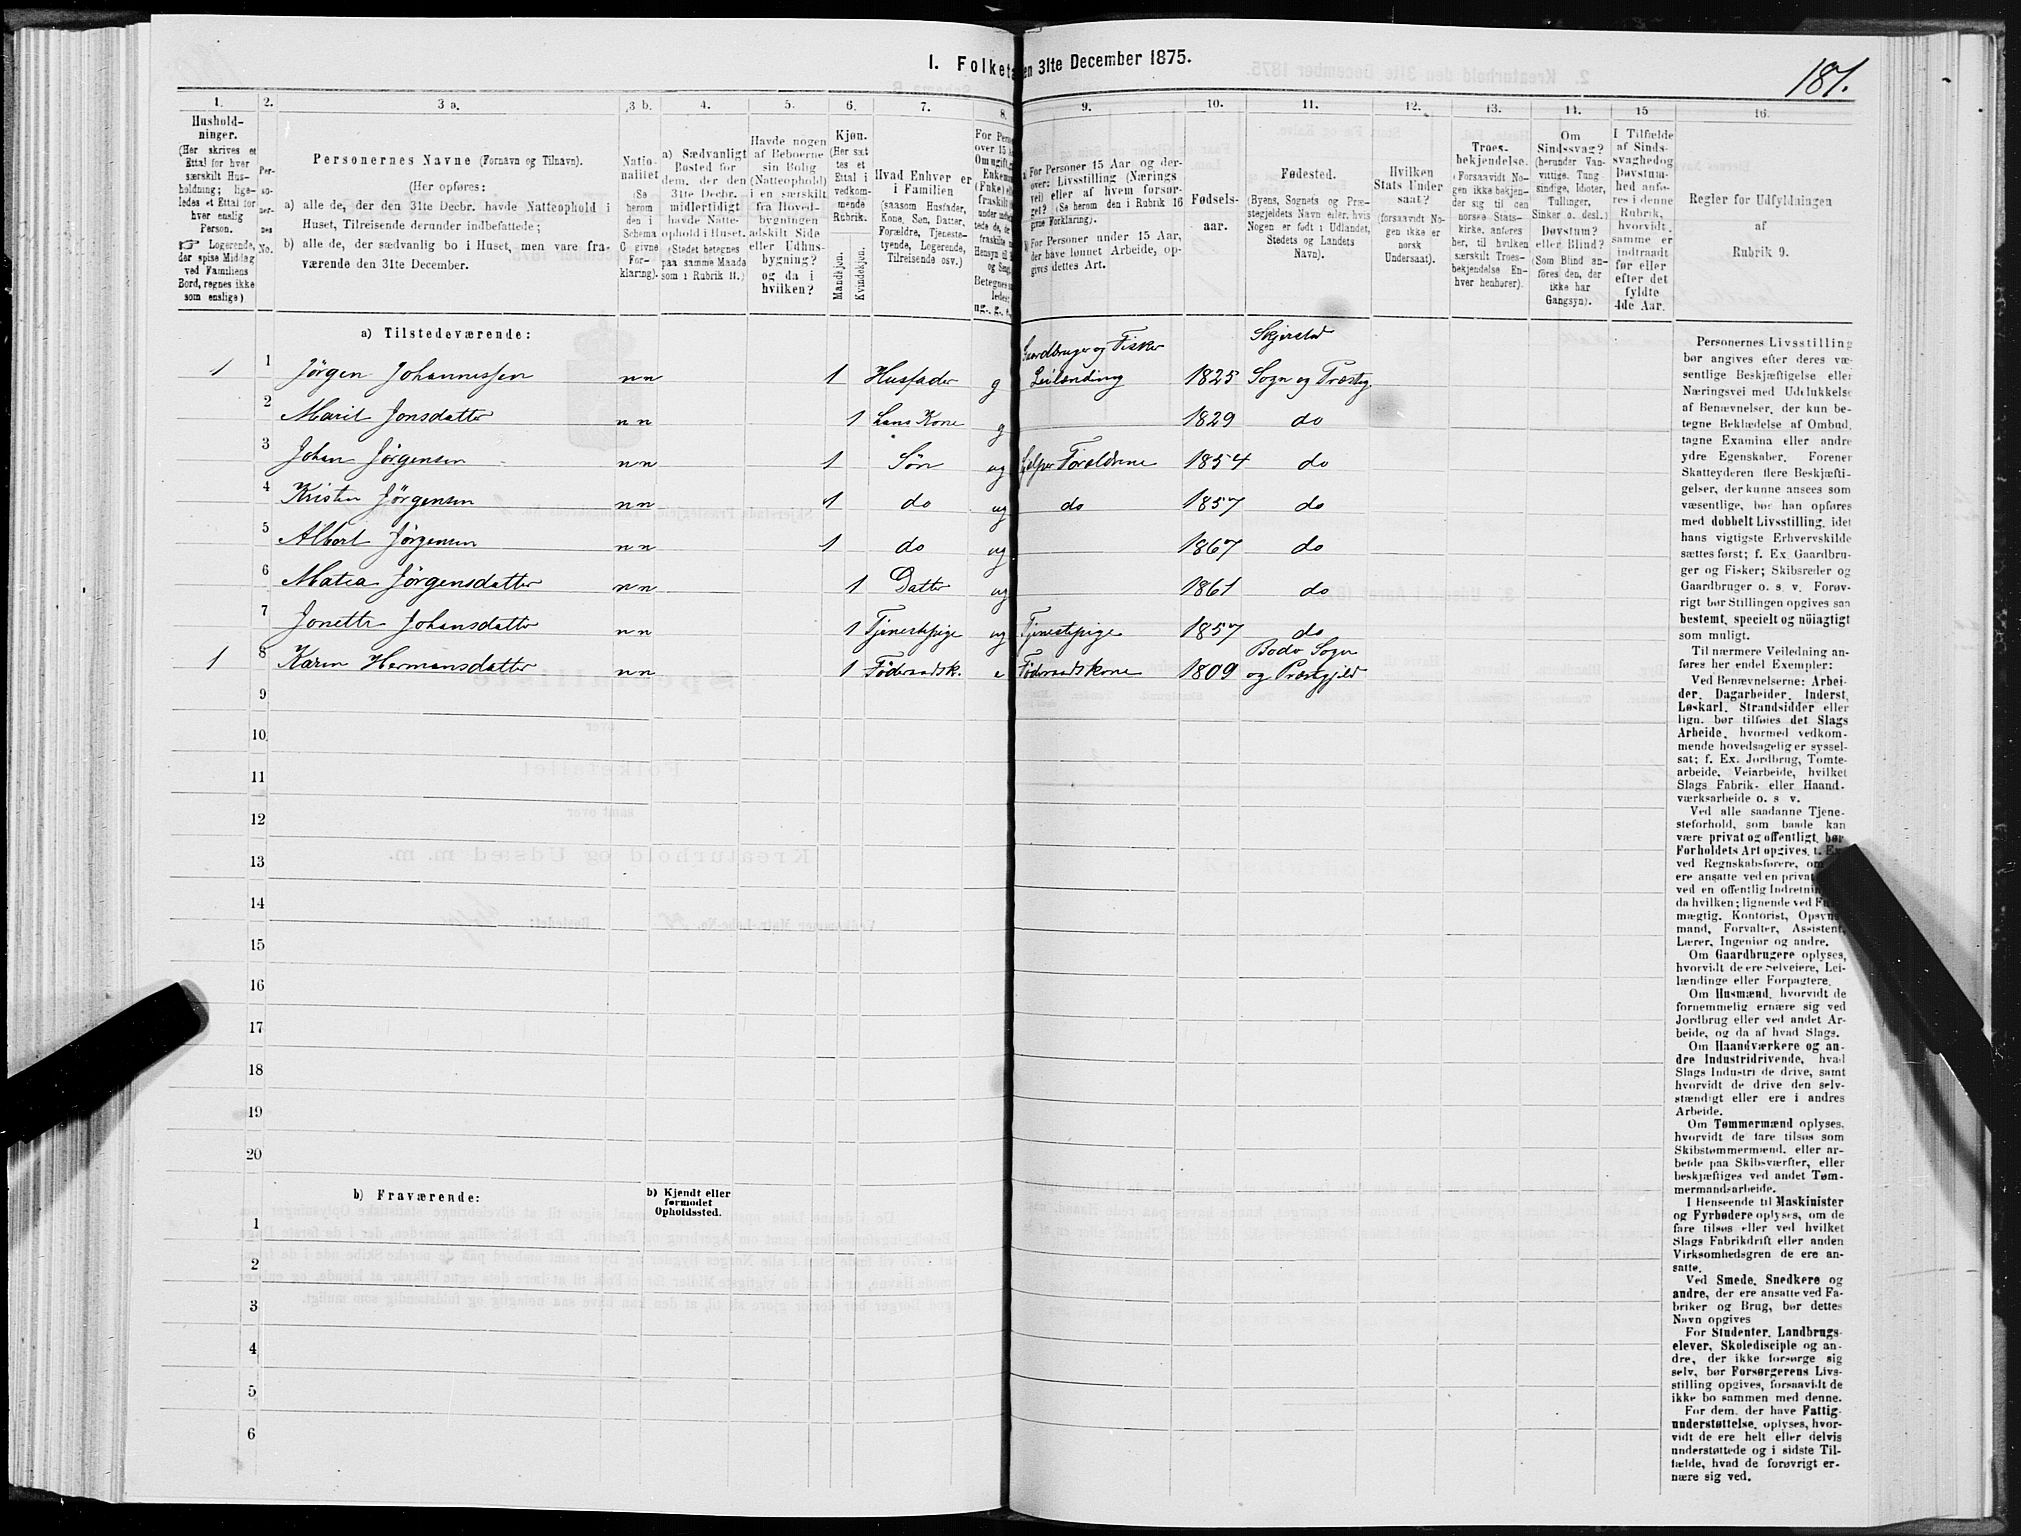 1. Folketa en 31te December 1875.
181.
1.
2.
3 a.
3 b.
4.
5.
6.
7.
8.
9.
10.
11.
12.
13.
14.
15
16.
Hushold-
ninger.
(Her skrives et
Ettal for hver
særskilt Hus-
holdning; lige-
ledes et Ettal for
hver enslig
Person.
☞ Logerende,
der spise Middag
ved Familiens
Bord, regnes ikke
som enslige)
Per-
so-
ner-
nes
No.
Personernes Navne (Fornavn og Tilnavn).
(Her opføres:
a) alle de, der den 31te Decbr. havde Natteophold i
Huset, Tilreisende derunder indbefattede;
b) alle de, der sædvanlig bo i Huset, men vare fra-
værende den 31te December.
Natio-
nalitet
(Se
herom
den i
Schema
G givne
For-
klaring).
a) Sædvanligt
Bosted for
dem, der den
31te Decbr.
midlertidigt
havde Natte-
ophold i Huset.
(Stedet betegnes
paa samme Maade
som i Rubrik 11.)
Havde nogen
af Beboerne
sin Bolig
(Natteophold)
i en særskilt
fra Hoved-
bygningen
adskilt Side
eller Udhus-
bygning?
og da i
hvilken?
Kjøn.
(Her sæt
tes et
Ettal i
vedkom-
mende
Rubrik.
Mandkjøn.
Kvindekjøn.
Hvad Enhver er
i Familien
(saasom Husfader,
Kone, Søn, Datter,
Forældre, Tjeneste-
tyende, Logerende,
Tilreisende osv.)
For Personer 15 Aar og der-
over: Livsstilling (Nærings
vei) eller af hvem forsør-
get? (Se herom den i Rubrik 16
givne Forklaring).
b) For Personer under 15 Aar,
der have lønnet Arbeide, op-
gives dettes Art.
Fødsels-
aar.
Fødested.
(Byens, Sognets og Præ-
stegjeldets Navn eller, hvis
Nogen er født i Udlandet,
Stedets og Landets
Navn).
Hvilken
Stats Under
saat?
(forsaavidt No-
gen ikke er
norsk
Undersaat).
Troes-
bekjendelse.
(Forsaavidt No-
gen ikke bekjen-
der sig til den
norske Stats-
kirke, anføres
her, til hvilken
særskilt Troes-
bekjendelse En-
hver henhører).
Om
Sindssvag?
(herunder Van-
vittige, Tung-
sindige, Idioter,
Tullinger,
Sinker o. desl.)
Døvstum?
eller Blind?
(Som Blind an-
føres den, der
ikke har
Gangsyn).
I Tilfælde
af Sinds-
svaghed og
Døvstum-
hed anfø-
res i denne
Rubrik,
hvorvidt
samme er
indtraadt
før eller
efter det
fyldte
4de Aar.
Regler for Udfyldningen
af
Rubrik 9.
a) Tilstedeværende:
1 1 Jörgen Johannessen nn 1 Husfader g Gaardbruger og Fisker Leilænding 1825 Skjerstad Sogn og Præsteg.
2 Marit Jonsdatter nn 1 hans Kone g 1829 do
3 Johan Jörgensen nn 1 Søn ug hjelper Forældrene 1854 do
4 Kristen Jörgensen nn 1 do ug do 1857 do
5 Albert Jörgensen nn 1 do ug 1867 do
6 Matea Jörgensdatter nn 1 Datter ug 1861 do
7 Jonette Johansdatter nn 1 Tjenestepige ug Tjenestepige 1857 do
1 8 Karen Hermansdatter nn 1 Föderaadsk. e Föderaadskone 1809 Bodø Sogn og Præstegjeld
9
10
11
12
13
14
15
16
17
18
19
20
b) Fraværende:
b) Kjendt eller
formodet
Opholdssted.
1
2
3
4
5
6
Personernes Livsstilling
bør angives efter deres væ-
sentlige Beskjæftigelse eller
Næringsvei med Udelukkelse
af Benævnelser, der kun be-
tegne Beklædelse af Ombud,
tagne Examina eller andre
ydre Egenskaber. Forener
Skatteyderen flere Beskjæfti-
gelser, der kunne ansees som
væsentlige, bør han opføres
med dobbelt Livsstilling, idet
hans vigtigste Erhvervskilde
sættes først; f. Ex. Gaardbru-
ger og Fisker; Skibsreder og
Gaardbruger o. s. v. Forøv-
rigt bør Stillingen opgives saa
bestemt, specielt og nöiagtigt
som muligt.
Til nærmere Veiledning an-
føres her endel Exempler:
Ved Benævnelserne: Arbei-
der, Dagarbeider, Inderst,
Løskarl, Strandsidder eller
lign. bør tilføies det Slags
Arbeide, hvormed vedkom-
mende hovedsagelig er syssel-
sat; f. Ex. Jordbrug, Tomte-
arbeide, Veiarbeide, hvilket
Slags Fabrik- eller Haand-
værksarbeide o. s. v.
Ved alle saadanne Tjene-
steforhold, som baade kan
være privat og offentligt, bør
Forholdets Art opgives, f. Ex.
ved Regnskabsførere, om
ere ansatte ved en privat
ved en offentlig Indretnin
da hvilken; lignende ved
mægtig, Kontorist, Opsyns
mand, Forvalter, Assistent,
Lærer, Ingeniør og andre.
Om Gaardbrugere oplyses,
hvorvidt de ere Selveiere, Lei-
lændinge eller Forpagtere.
Om Husmænd, hvorvidt de
fornemmelig ernære sig ved
Jordbrug eller ved andet Ar-
beide, og da af hvad Slags.
Om Haandværkere og an-
dre Industridrivende, hvad
Slags Industri de drive, samt
hvorvidt de drive den selv-
stændigt eller ere i andres
Arbeide.
Om Tømmermænd oplyses,
hvorvidt de fare tilsøs som
Skibstømmermænd, eller ar-
beide paa Skibsværfter, eller
beskjæftiges ved andet Tøm-
mermandsarbeide.
I Henseende til Maskinister
og Fyrbødere oplyses, om de
fare tilsøs eller ved hvilket
Slags Fabrikdrift eller anden
Virksomhedsgren de ere an-
satte.
Ved Smede, Snedkere og
andre, der ere ansatte ved Fa-
briker og Brug, bør dettes
Navn opgives
For Studenter, Landbrugs-
elever, Skoledisciple og an-
dre, der ikke forsørge sig
selv, bør Forsørgerens Livs-
stilling opgives, forsaavidt de
ikke bo sammen med denne.
For dem, der have Fattig-
understøttelse, oplyses, hvor-
vidt de ere helt eller delvis
understøttede og i sidste Til-
fælde, hvad de forøvrigt er-
nære sig ved.